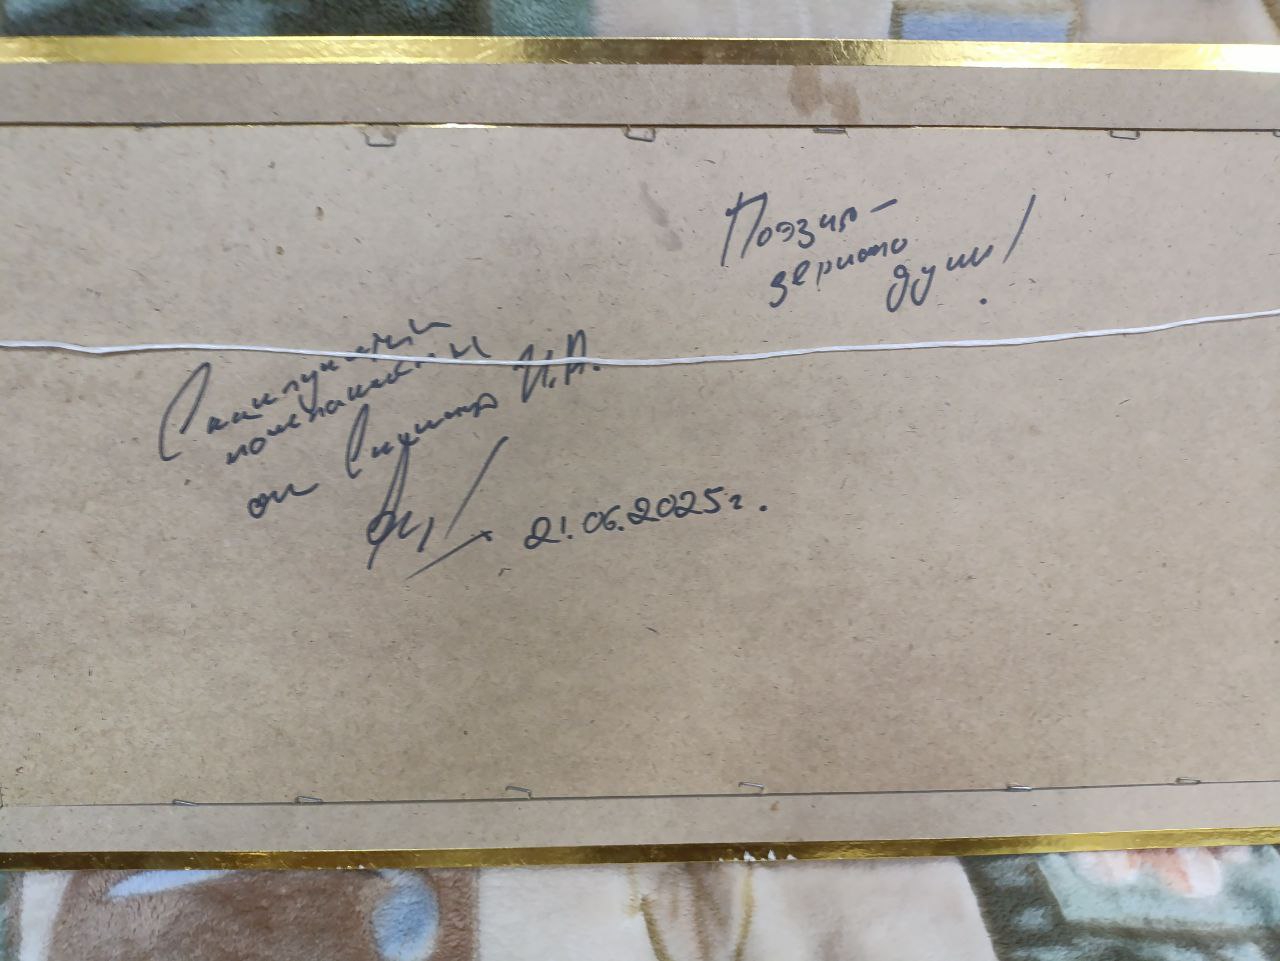 Поэзия –
зеркало
души!
С наилучшими
пожеланиями
от И.А.
21.06.2025г.